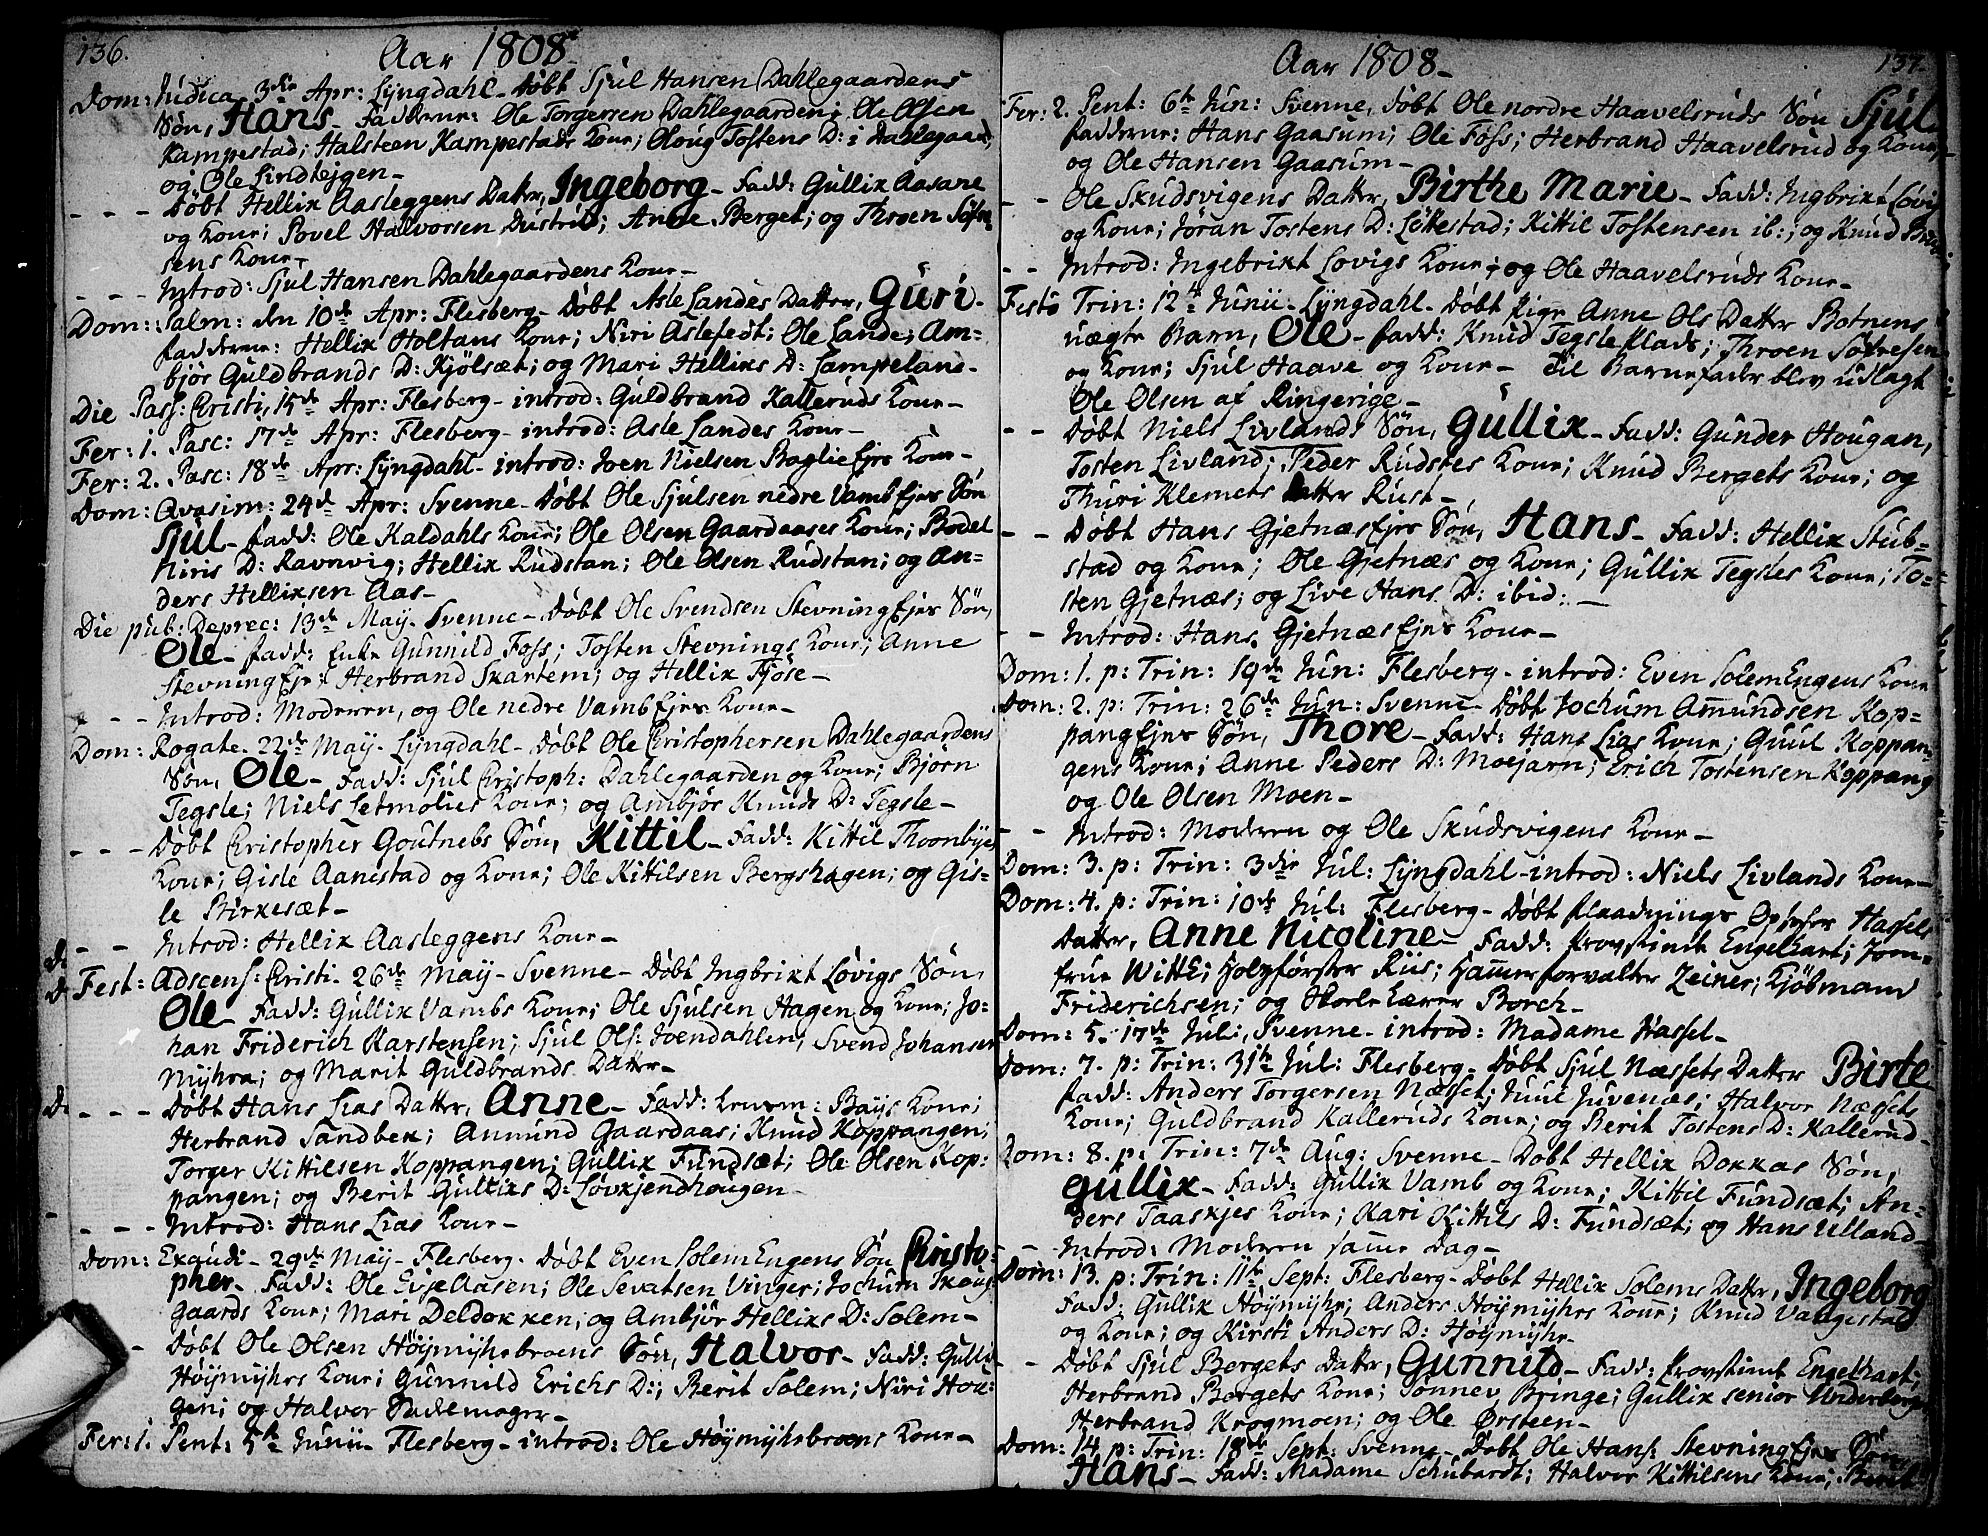 136.
Aar 1808.
Dom: Judica 3die Apr: Lyngdahl. Døbt Sjul Hansen Dahlegaardens
Søn, Hans. Fadderne: Ole Torgersen Dahlegaarden; Ole Olsen
Kampestad; Halsteen Kampestads Kone; Oloug Tostens D: i Dahlegaard,
og Ole Lindtejgen.
- - - Døbt Hellik Aasleggens Datter, Ingeborg. Fadd: Gullik Aasare
og Kone; Povel Halvorsen Dustrud; Berget; og Throen Søfre
sens Kone.
- - - Introd: Sjul Hansen Dahlegaardens Kone.
Dom: Palm: den 10de Apr: Flesberg. Døbt Asle Landes Datter, Guri.
Fadderne: Hellik Holtans Kone; Niri Aslefedt; Ole Lande; Am-
bjør Guldbrands D: Kjølsæt; og Mari Helliks D: Lampeland.
Die Pass: Christi, 15de Apr: Flesberg. introd: Guldbrand Kalleruds Kone.
Fer: 1. Pasc: 17de Apr: Flesberg. introd: Asle Landes Kone.
Fer: 2. Pasc: 18de Apr: Lyngdahl. introd: Joen Nielsen Baglie Ejes Kone.
Dom: Qvasim: 24de Apr: Svenne. Døbt Ole Sjulsen nedre Vamb Ejes Søn
Sjul. Fadd: Ole Kaldahls Kone; Ole Olsen Gaardaases Kone; Bodel
Niris D: Ravnvig; Hellik Rudstan; Ole Olsen Rudstan; og An-
ders Helliksen Aas.
Die pub: Deprec: 13de May. Svenne. Døbt Ole Svendsen Stevning Ejes Søn,
Ole. Fadd: Enke Gunnild Foss; Tosten Stevnings Kone; Anne
Stevning Eje; Herbrand Skartem; og Hellik Fjøse.
- - - Introd: Moderen, og Ole nedre Vamb Ejes Kone.
Dom: Rogate. 22de May. Lyngdahl. Døbt Ole Christophersen Dahlegaardens
Søn, Ole. Fadd: Sjul Christoph: Dahlegaarden og Kone; Bjørn
Tegsle; Niels Letmolies Kone; og Ambjør Knuds D: Tegsle.
- - - Døbt Christopher Goutnebs Søn, Kittil. Fadd: Kittil Thoonbyes
Kone; Gisle Aanestad og Kone; Ole Kittilsen Bergshagen; og Gis-
le Birkesæt.
- - Introd: Hellik Aasleggens Kone.
Fest: Adscens: Christi. 26de May. Svenne. Døbt Ingbrikt Løvigs Søn,
Ole. Fadd: Gullik Vambs Kone; Ole Sjulsen Hagen og Kone; Jo-
han Friderich Karstensen; Sjul Ols: Joendahlen; Svend Johansen
Myhra; og Marit Guldbrands Datter.
- - - Døbt Hans Lias Datter, Anne. Fadd: Bays Kone;
Herbrand Sandbek; Anmund Gaardaas; Knud Koppangen;
Torger Kittilsen Koppangen; Gullik Fundsæt; Ole Olsen Kop-
pangen; og Berit Gulliks D: Løvkjendhougen.
- - - Introd: Hans Lias Kone.
Dom: Exaudi. 29de May. Flesberg. Døbt Even Solem Engens Søn Christo-
pher. Fadd: Ole Evje Aasen; Ole Sevatsen Vinger; Jochum Skou-
gaards Kone; Mari Deldokken; og Ambjør Helliks D: Solem.
- Døbt Ole Olsen Høymyhrbroens Søn, Halvor. Fadd: Gullik
Høymyhrs Kone; Gunnild Erichs D:; Berit Solem; Niri Hou-
gen; og Halvor Pademager.
Fer: 1. Pent: 5te Junii. Flesberg. introd: Ole Høymyhrbroens Kone.
137.
Aar 1808.
Fer: 2. Pent: 6te Jun: Svenne, Døbt Ole nordre Haavelsruds Søn Sjul.
Fadderne: Hans Gaasum; Ole Foss; Herbrand Haavelsrud og Kone,
og Ole Hansen Gaasum.
- - Ole Skudsvigens Datter, Birthe Marie. Fadd: Ingbrikt Løvig
og Kone; Jøran Tostens D: Løttestad; Kittil Tostensen ib:; og Knud
- - Introd: Ingebrikt Lovigs Kone; og Ole Haavelsruds Kone.
Festo Trin: 12te Junii. Lyngdahl. Døbt Pige Anne Ols Datter Botnens
uægte Barn, Ole. Fadd: Knud Tegsle Plads; Throen Søfresen
og Kone; Sjul Haave og Kone. Til Barnefader blev udlagt
Ole Olsen af Ringerige.
- - Døbt Niels Livlands Søn, Gullik. Fadd: Gunder Hougan,
Tosten Livland; Peder Rudstes Kone; Knud Bergets Kone; og
Thuri Klemets Datter Rust.
- - Døbt Hans Gjetnæs Ejes Søn, Hans. Fadd: Hellik Stub-
stad og Kone; Ole Gjetnæs og Kone; Gullik Tegsles Kone; To-
sten Gjetnæs; og Live Hans D: ibid:
- - Introd: Hans Gjetnæs Ejes Kone.
Dom: 1. p: Trin: 19de Jun: Flesberg. introd: Even Solem Engens Kone
Dom: 2. p: Trin: 26de Jun: Svenne. Døbt Jochum Amundsen Kop-
pang Ejes Søn, Thore. Fadd: Hans Lias Kone; Guul Koppan-
gens Kone; Anne Peders D: Moejarn; Erich Tostensen Koppang
og Ole Olsen Moen.
- - Introd: Moderen og Ole Skudsvigens Kone.
Dom: 3. p: Trin: 3die Jul: Lyngdahl. introd: Niels Livlands Kone.
Dom: 4. p: Trin: 10de Jul: Flesberg. Døbt Hassels
Datter, Anne Nicoline. Fadd: Provstinde Engelhart; Jom-
frue Witth; Holzførster Riis; Hammerforvalter Zeiner; Kjøbmand
Friderichsen; og Skolelærer Borch.
Dom: 5. 17de Juli, Svenne. introd: Madame Hassel.
Dom: 7. p: Trin: 31te Jul: Flesberg. Døbt Sjul Næssets Datter Birte
Fadd: Anders Torgersen Næsset; Juul Juvenæs; Halvor Næssets
Kone; Guldbrand Kalleruds Kone; og Berit Tostens D: Kallerud.
Dom: 8. p: Trin: 7de Aug: Svenne. Døbt Hellik Dokkas Søn,
Gullik. Fadd: Gullik Vamb og Kone; Kittil Fundsæt; An-
ders Taaskjes Kone; Kari Kittils D: Fundsæt; og Hans Ulland.
- Introd: Moderen samme Dag.
Dom: 13. p: Trin: 11te Sept: Flesberg. Døbt Hellik Solems Datter, Ingeborg
Fadd: Gullik Høymyhr; Anders Høymyhrs Kone; Knud Vangestad
og Kone; og Kirsti Anders D: Høymyhr.
- - Døbt Sjul Bergets Datter, Gunnild. Fadd: Provstinde Engelhart;
Herbrand Bergets Kone; Tønnev Bringe; Gullik senior Underberget
Herbrand Krogmoen; og Ole Ørsteen.
Dom: 14. p: Trin: 18de Sept: Svenne. Døbt Ole Hans: Stevning Ejes Søn
Hans. Fadd: Madame Schubardt; Halvor Kittilsens Kone;